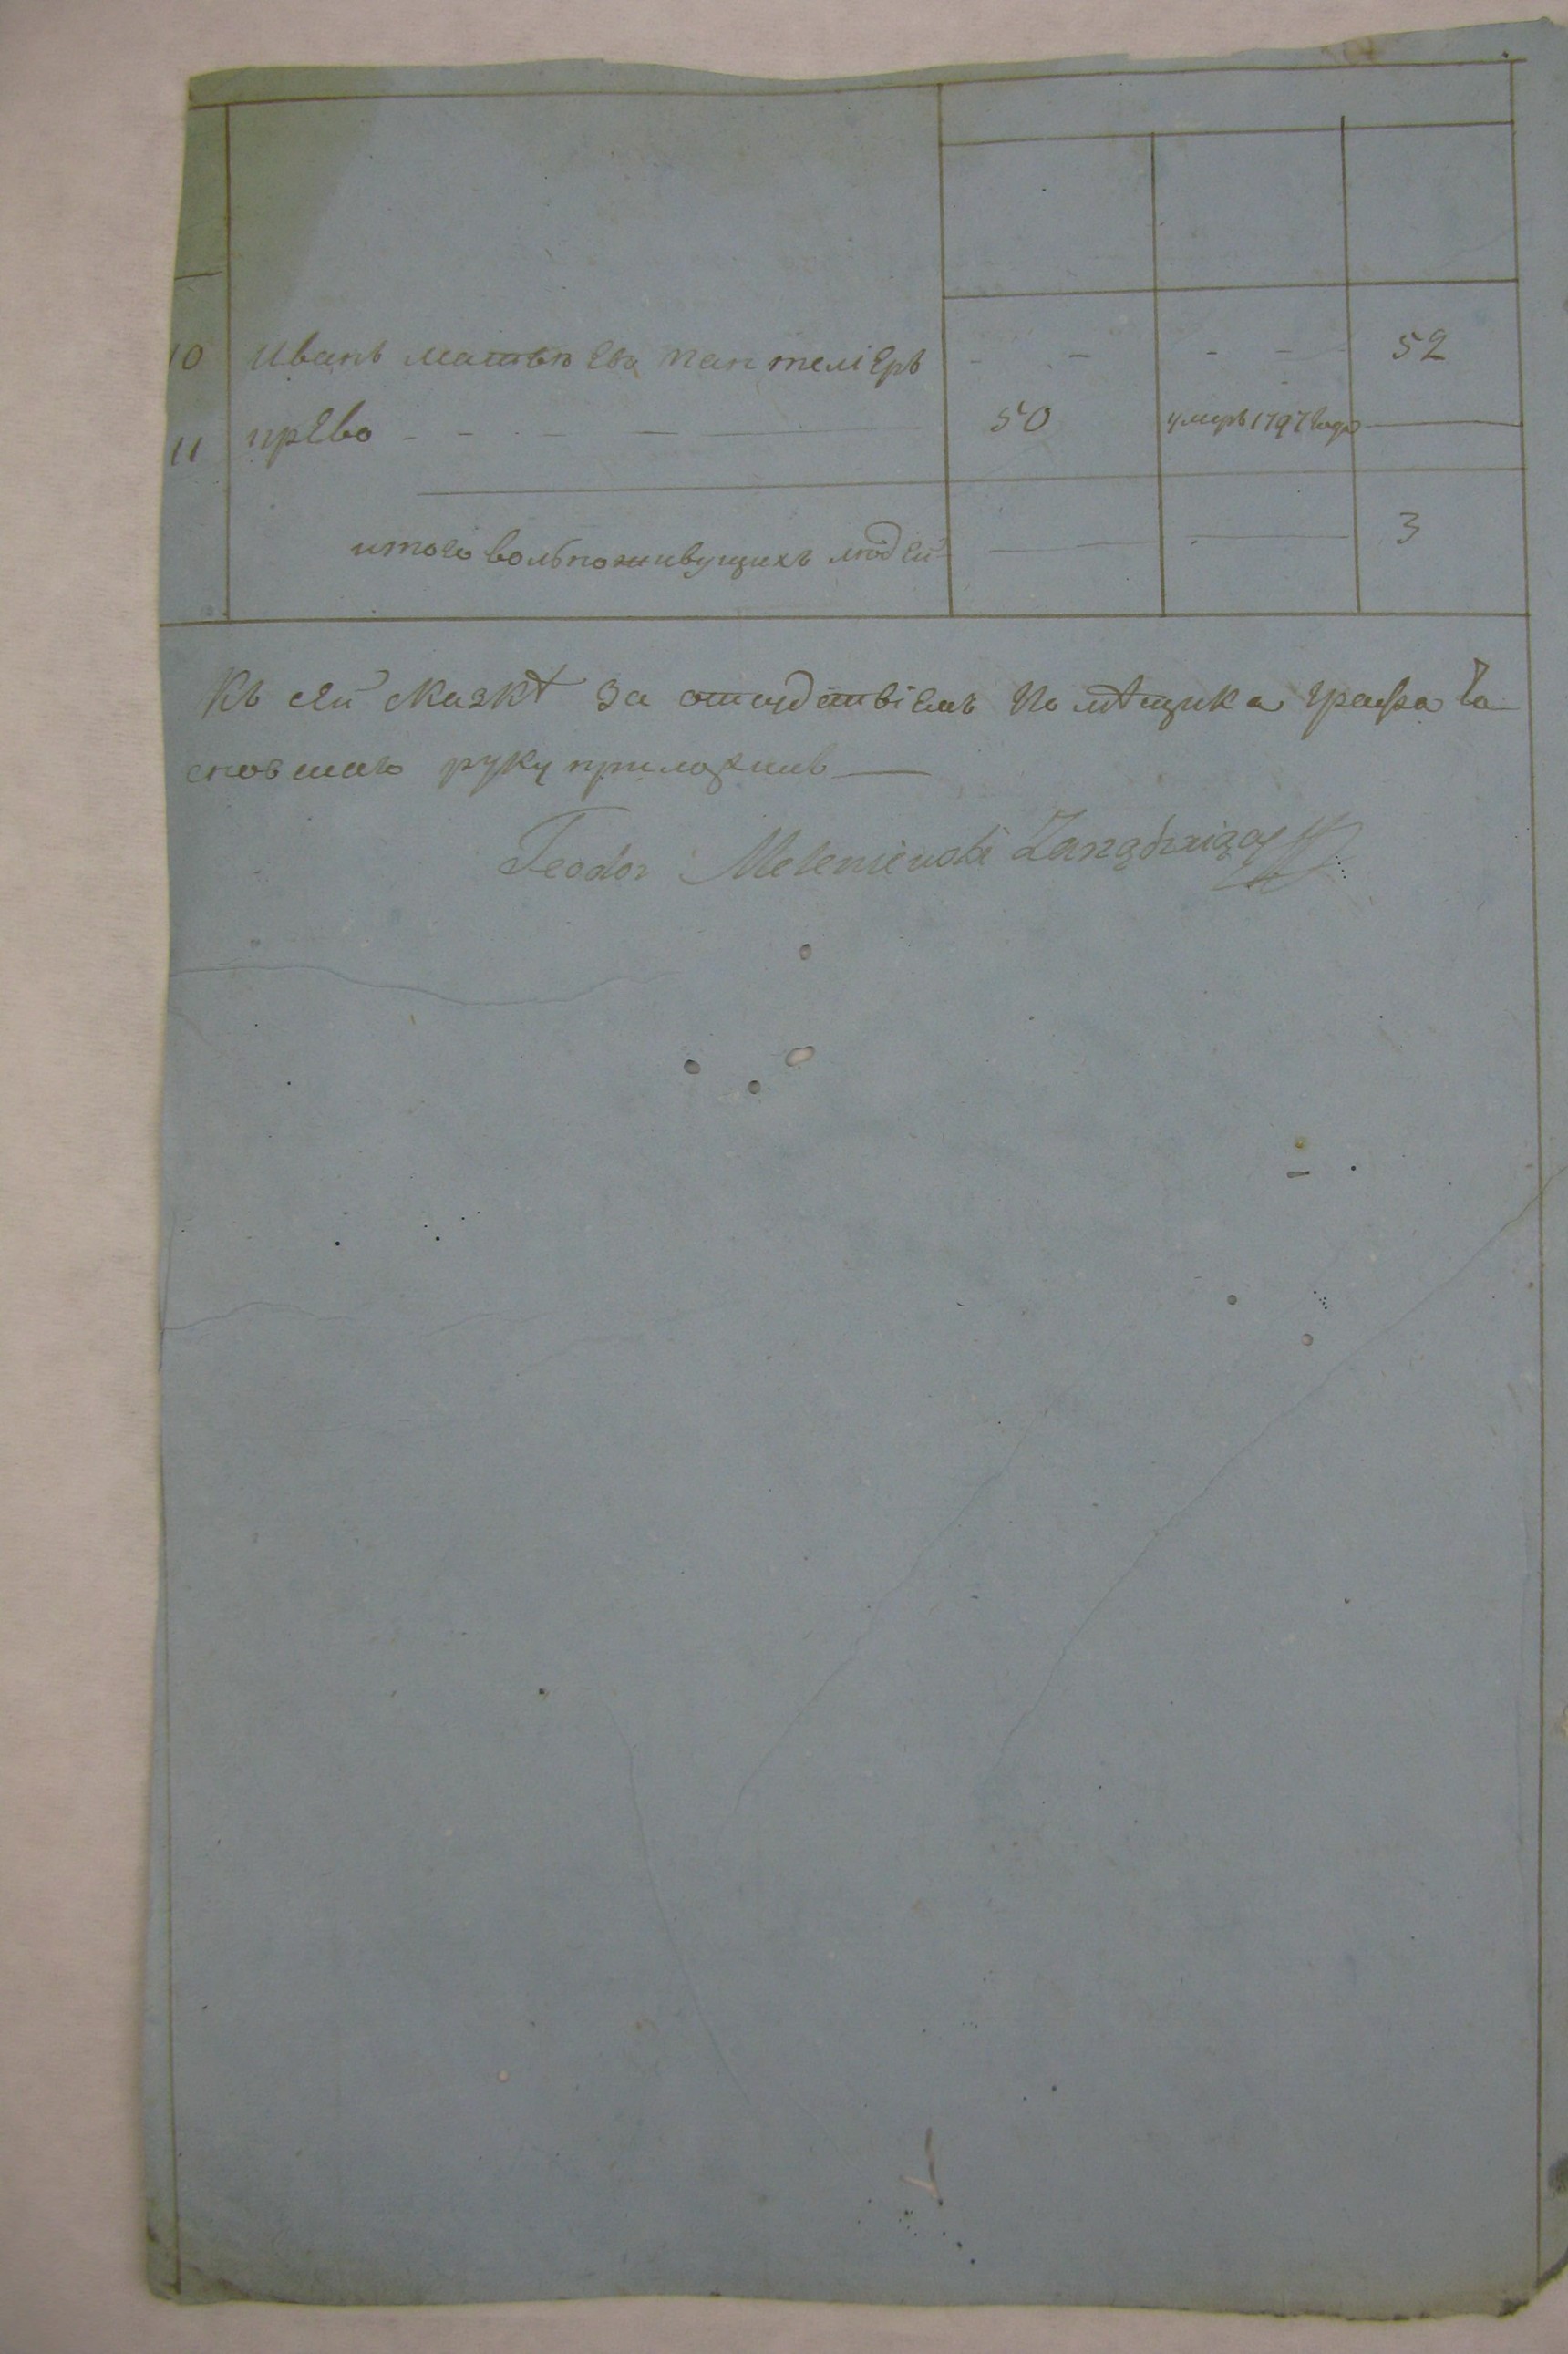 10 Иванъ матвѣева пантелiеръ - - - - 52
11 прево - - - — — 50 умеръ 1797 года —
итого вольноживущихъ людей — — 3
Къ сей сказкѣ за отсудствiемъ помѣщика графа
руку приложилъ —
Teodor Meleniewski